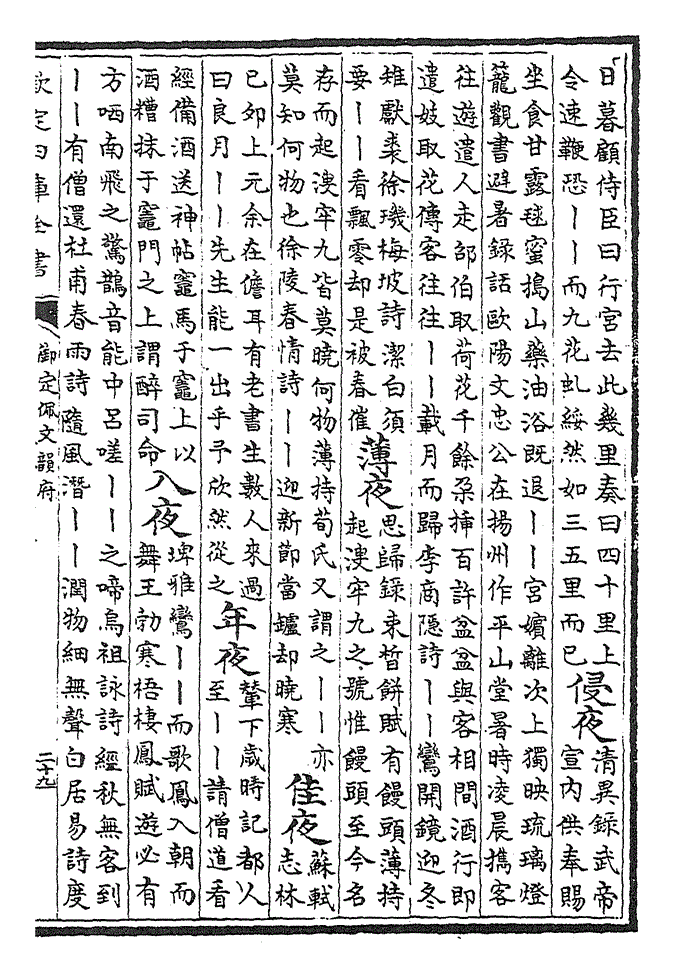 日暮顧侍臣曰行宮去此幾里奏曰四十里上
令速鞭恐丨丨而九花虬綏然如三五里而已
侵夜
清異錄武帝
宣内供奉賜
坐食甘露毬蜜搗山藥油浴既退丨丨宮嬪離次上獨映琉璃燈
籠觀書避暑錄話歐陽文忠公在揚州作平山堂暑時凌晨攜客
往遊遣人走邵伯取荷花千餘朶挿百許盆盆與客相間酒行即
遣妓取花傳客往往丨丨載月而歸李商隱詩丨丨鸞開鏡迎冬
雉獻裘徐璣梅坡詩潔白須
要丨丨看飄零却是被春催
薄夜
思歸錄束晳餅賦有饅頭薄持
起溲牢九之號惟饅頭至今名
存而起溲牢九皆莫曉何物薄持荀氏又謂之丨丨亦
莫知何物也徐陵春情詩丨丨迎新節當鑪却曉寒
佳夜
蘇軾
志林
已卯上元余在儋耳有老書生數人來過
曰良月丨丨先生能一出乎予欣然從之
年夜
輦下歲時記都人
至丨丨請僧道看
經備酒送神帖竈馬于竈上以
酒糟抹于竈門之上謂醉司命
入夜
埤雅鸞丨丨而歌鳳入朝而
舞王勃寒梧棲鳳賦遊必有
方哂南飛之驚鵲音能中呂嗟丨丨之啼烏祖詠詩經秋無客到
丨丨有僧還杜甫春雨詩隨風潛丨丨潤物細無聲白居易詩度
欽定四庫全書
御定佩文韻府
二十九